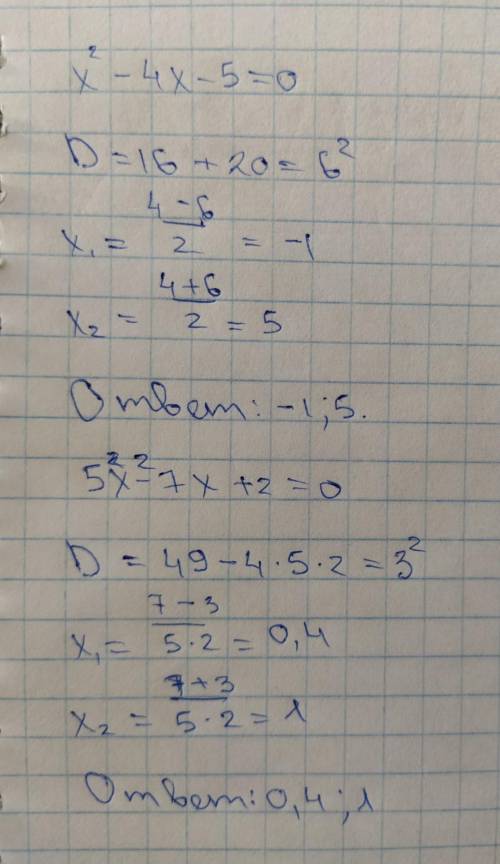 x² - 4x - 5 = 0
D = 16 + 20 = 6²
x₁ = (4 - 6)/2 = -1
x₂ = (4 + 6)/2 = 5
Ответ: -1; 5.
5²x² - 7x + 2 = 0
D = 49 - 4 · 5 · 2 = 3²
x₁ = (7 - 3)/(5 · 2) = 0,4
x₂ = (7 + 3)/(5 · 2) = 1
Ответ: 0,4; 1